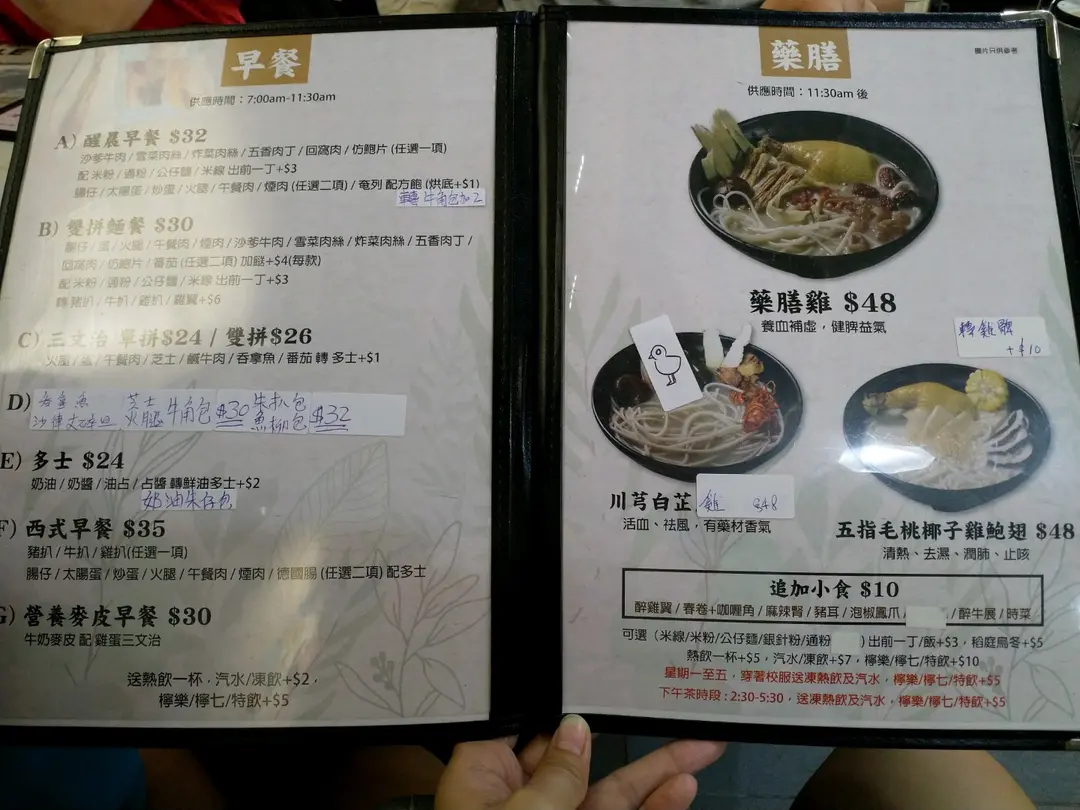 早餐
供應時間：7:00am-11:30am
A) 醒晨早餐 $32
沙爹牛肉 / 雪菜肉絲 / 炸菜肉絲 / 五香肉丁 / 回窩肉 / 仿鮑片 (任選一項)
配 米粉 / 通粉 / 公仔麵 / 米線 出前一丁+$3
腸仔 / 太陽蛋 / 炒蛋 / 火腿 / 午餐肉 / 煙肉 (任選二項) / 奄列 配方飽 (烘底+$1)
轉牛角包加2
B) 雙拼麵餐 $30
腸仔 / 蛋 / 火腿 / 午餐肉 / 煙肉 / 沙爹牛肉 / 雪菜肉絲 / 炸菜肉絲 / 五香肉丁 /
回窩肉 / 仿鮑片 / 番茄 (任選二項) 加餸+$4(每款)
配 米粉 / 通粉 / 公仔麵 / 米線 出前一丁+$3
轉 豬扒 / 牛扒 / 雞扒 / 雞翼+$6
C) 三文治 單拼$24 / 雙拼$26
火腿 / 蛋 / 午餐肉 / 芝士 / 鹹牛肉 / 吞拿魚 / 番茄 轉 多士+$1
D) 吞拿魚 芝士 牛角包 $30 朱扒包 $32
火腿 魚柳包
E) 多士 $24
奶油 / 奶醬 / 油占 / 占醬 轉鮮油多士+$2
奶油朱仔包
F) 西式早餐 $35
豬扒 / 牛扒 / 雞扒(任選一項)
腸仔 / 太陽蛋 / 炒蛋 / 火腿 / 午餐肉 / 煙肉 / 德國腸 (任選二項) 配多士
G) 營養麥皮早餐 $30
牛奶麥皮 配 雞蛋三文治
送熱飲一杯，汽水/凍飲+$2，
檸樂/檸七/特飲+$5
藥膳
圖片只供參考
供應時間：11:30am 後
藥膳雞 $48
養血補虛，健脾益氣
轉雞髀
+$10
川芎白芷 雞 $48
活血、祛風，有藥材香氣
五指毛桃椰子雞鮑翅 $48
清熱、去濕、潤肺、止咳
追加小食 $10
醉雞翼 / 春卷+咖喱角 / 麻辣腎 / 豬耳 / 泡椒鳳爪 / / 醉牛展 / 時菜
可選（米線/米粉/公仔麵/銀針粉/通粉 ）出前一丁/飯+$3，稻庭烏冬+$5
熱飲一杯+$5，汽水/凍飲+$7，檸樂/檸七/特飲+$10
星期一至五，穿著校服送凍熱飲及汽水，檸樂/檸七/特飲+$5
下午茶時段 : 2:30-5:30，送凍熱飲及汽水，檸樂/檸七/特飲+$5